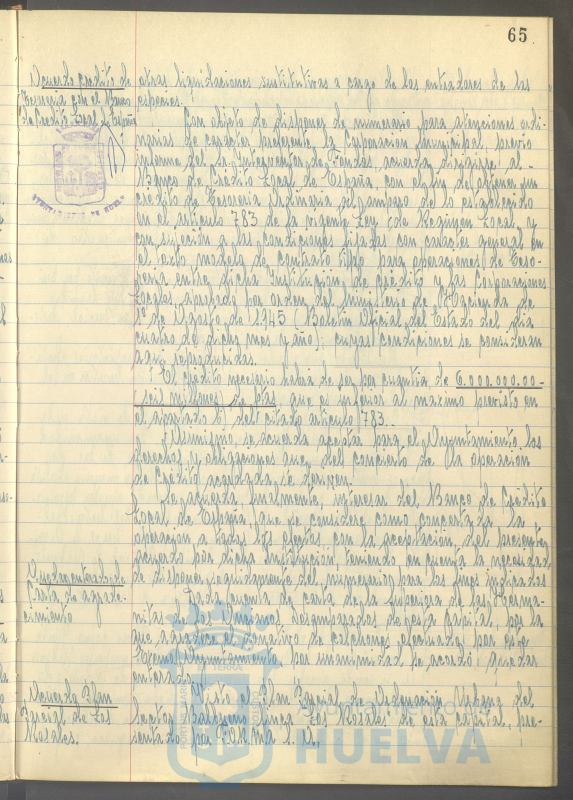 65
Acuerdo credito de
Tesoreria con el Banco
de Credito Local de España
otras liquidaciones sustitutivas a cargo de los entradores de las
especies.
Con objeto de disponer de numerario para atenciones ordi-
narias de caracter preferente la Corporacion Municipal, previo
informe del Sr. Interventor de Fondos, acuerda dirigirse al
Banco de Credito Local de España, con el fin de obtener un
credito de Tesoreria ordinaria al amparo de lo establecido
en el articulo 783 de la vigente Ley de Regimen Local, y
con sujecion a las condiciones fijadas con caracter general en
el texto modelo de contrato tipo para operaciones de Teso-
reria entre dicha Institución de Credito y las Corporaciones
Locales aprobado por orden del Ministerio de Hacienda de
1º de Agosto de 1945 (Boletin Oficial del Estado del dia
cuatro de dicho mes y año); cuyas condiciones se consideran
aqui reproducidas.
El credito necesario habrá de ser por cuantia de 6.000.000.00-
seis millones de ptas, que es inferior al maximo previsto en
el apartado b) del citado articulo 783.-
Asimismo, se acuerda aceptar para el Ayuntamiento los
derechos y obligaciones que del concierto de la operacion
de Credito acordada se deriven.
Se acuerda finalmente, interesar del Banco de Credito
Local de España, que se considere como concertada la
operacion a todos los efectos con la aceptacion del presente
acuerdo por dicha Institución, teniendo en cuenta la necesidad
de disponer seguidamente del numerario para los fines indicados
Quedar enterado de
Carta de agrade-
cimiento
Dada cuenta de carta de la Superiora de las Herma-
nitas de los Ancianos Desamparados de esta capital, por la
que agradece el donativo de colchones efectuado por este
Excmo. Ayuntamiento, por unanimidad se acordó: Quedar
enterado.
Acuerdo Plan
Parcial de Los
Rosales.
Visto el Plan Parcial de Ordenacion Urbana del
Sector Balbueno finca "Los Rosales" de esta capital, pre-
sentado por
HUELVA